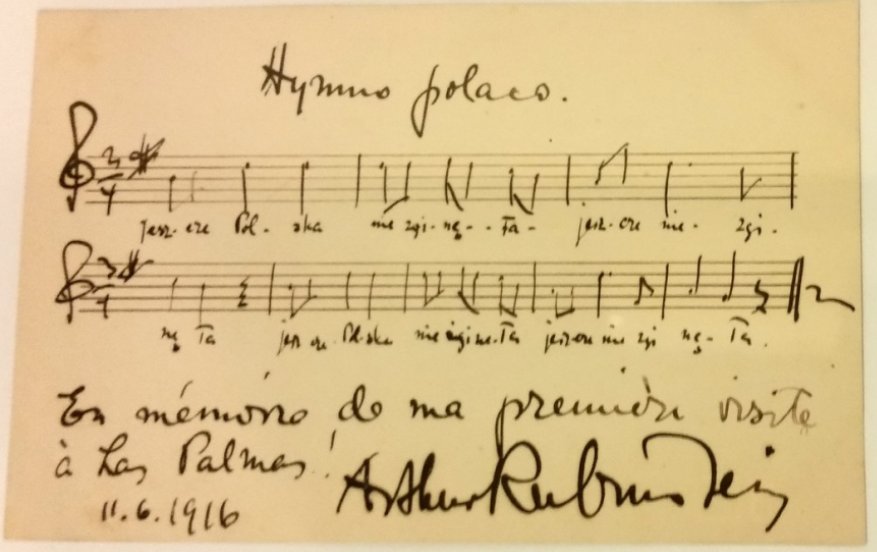 Hymno polaco.
Jesz-cze Pol-ska nie zgi-nę--ła- jesz-cze nie- zgi-
nę ła jesz cze Pol-ska nie zgi nę-ła jeszcze nie zgi nę-ła.
En mémoire de ma première visite
à Las Palmas!
Arthur Rubinstein
11.6.1916